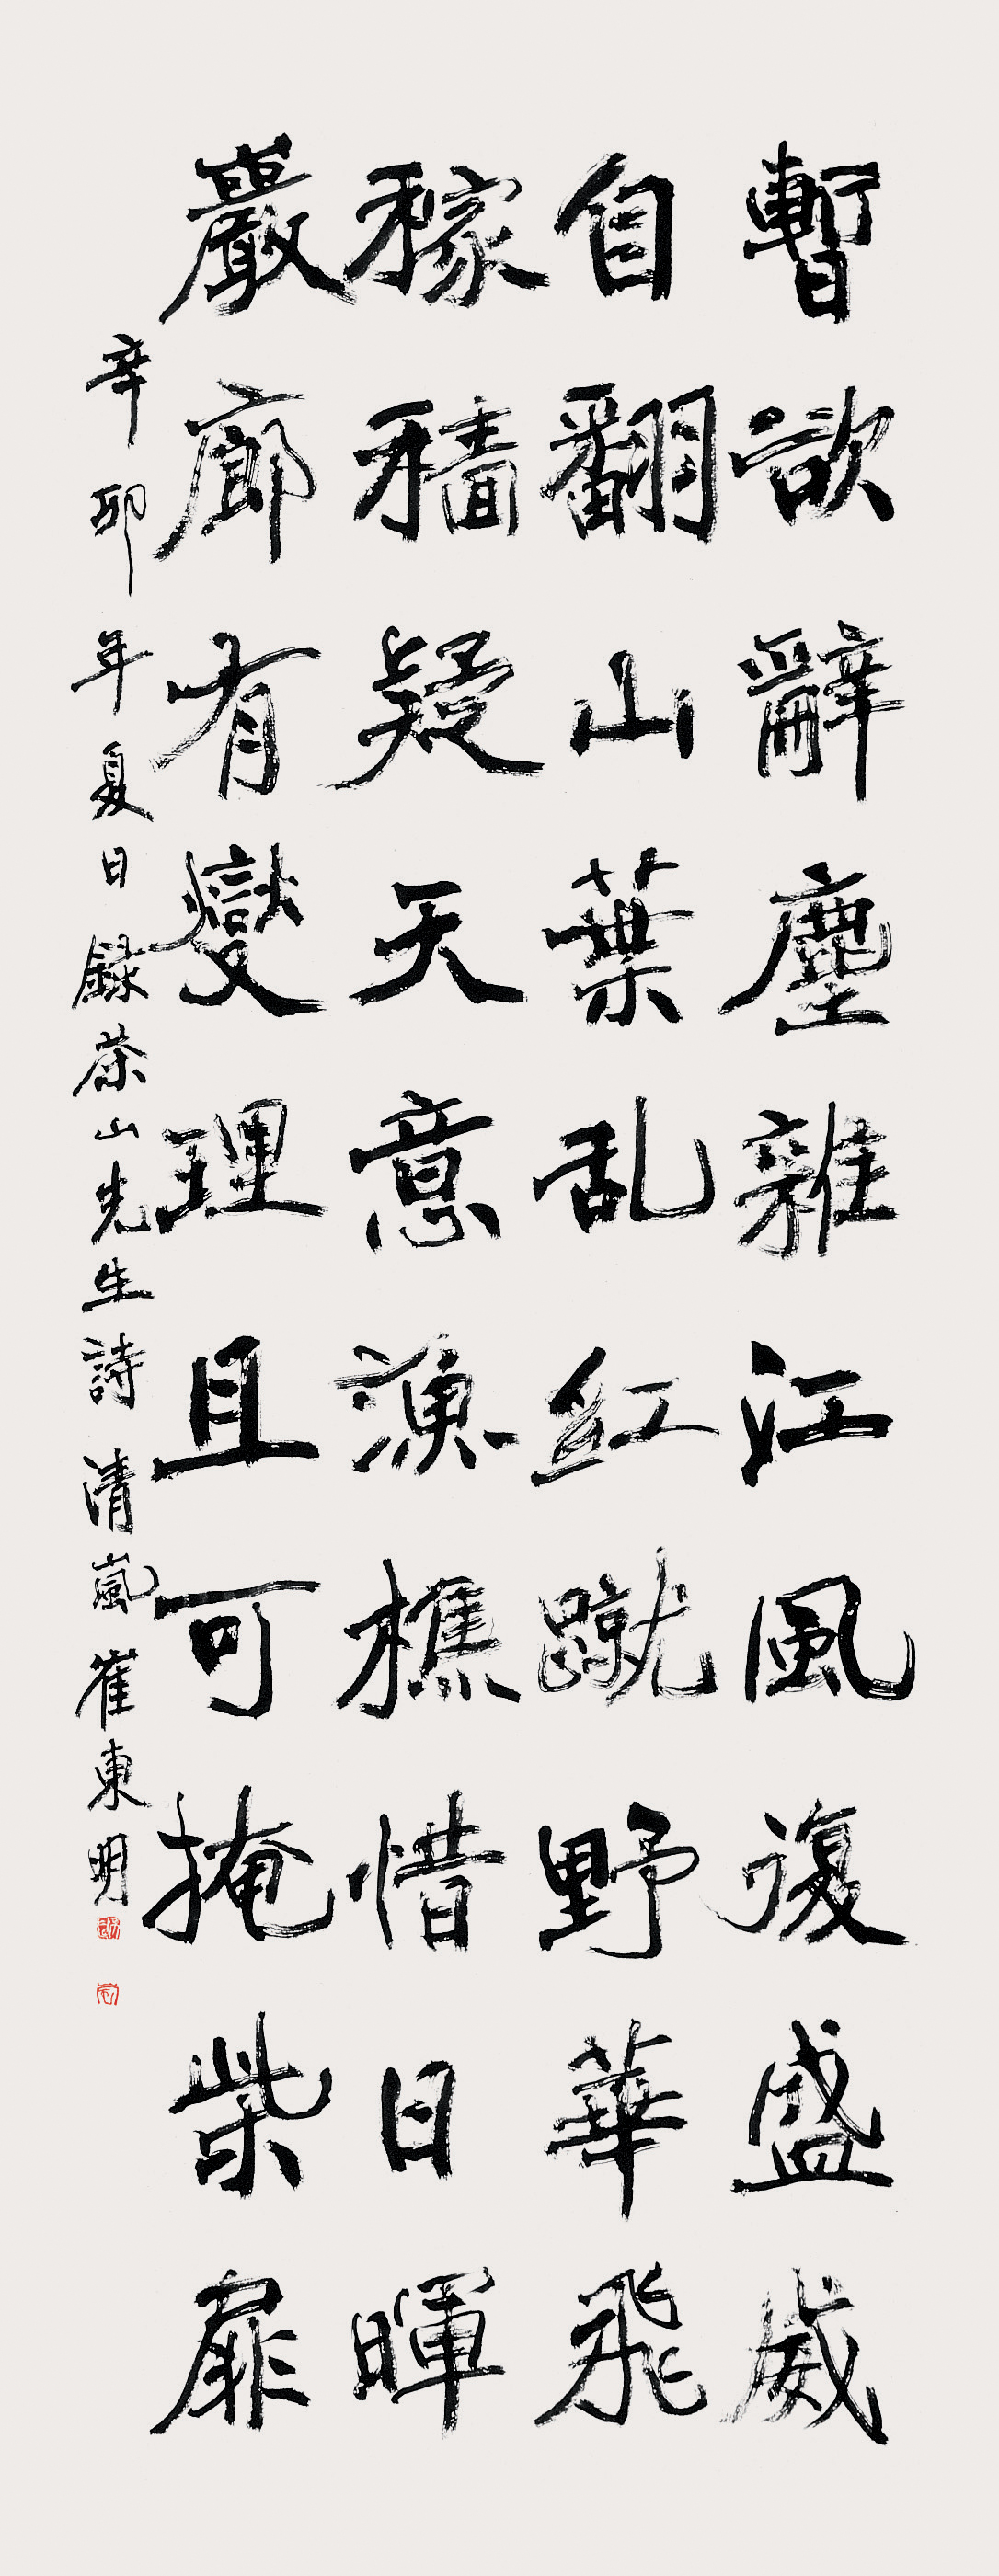 暫欲辭塵雜江風復盛威
自翻山葉乱紅蹴野華飛
稼穡疑天意漁樵惜日暉
嚴廊有燮理且可掩柴扉
辛卯年夏日録茶山先生詩 清嵐 崔東明